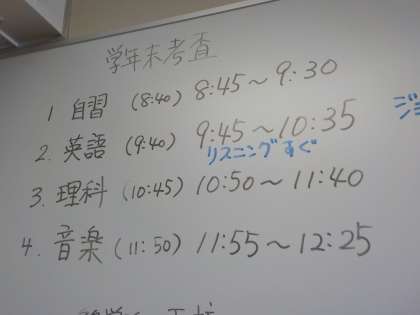 学年末考査
1 自習 (8:40) 8:45～9:30
2. 英語 (9:40) 9:45～10:35
リスニングすぐ
3. 理科 (10:45) 10:50～11:40
4. 音楽 (11:50) 11:55～12:25